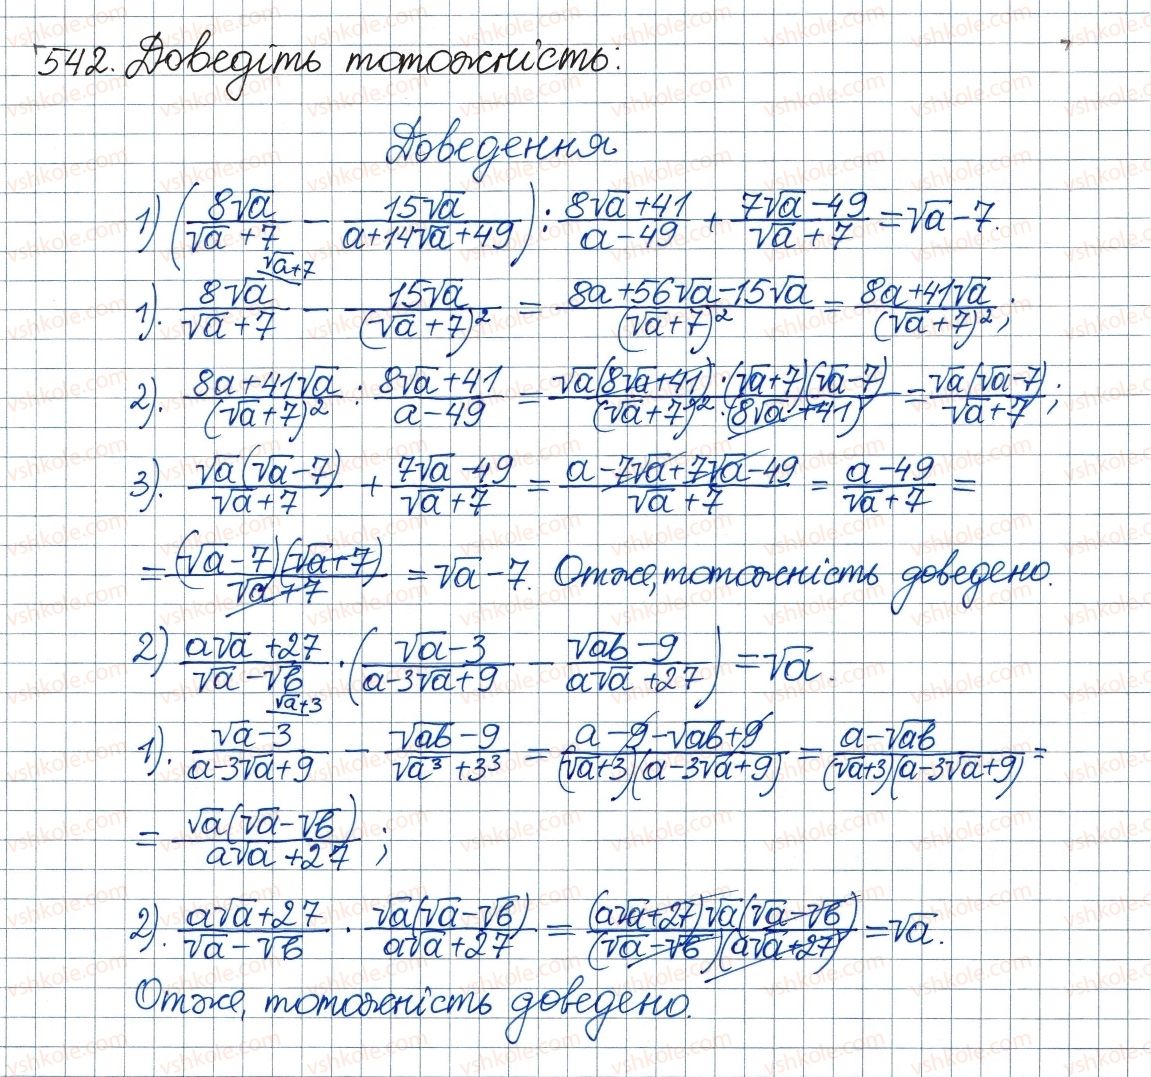 542. Доведіть тотожність:
Доведення
1) (8√a/(√a+7) − 15√a/(a+14√a+49)) : (8√a+41)/(a−49) + (7√a−49)/(√a+7) = √a−7.
1). 8√a/(√a+7) (√a+7 − 15√a/(√a+7)² = (8a+56√a−15√a)/(√a+7)² = (8a+41√a)/(√a+7)²;
2). (8a+41√a)/(√a+7)² : (8√a+41)/(a−49) = (√a(8√a+41)·(√a+7)(√a−7))/((√a+7)²·(8√a+41)) = √a(√a−7)/(√a+7);
3). √a(√a−7)/(√a+7) + (7√a−49)/(√a+7) = (a−7√a+7√a−49)/(√a+7) = (a−49)/(√a+7) =
= (√a−7)(√a+7)/(√a+7) = √a−7. Отже, тотожність доведено.
2) (a√a+27)/(√a−√b) · ((√a−3)/(a−3√a+9) − (√ab−9)/(a√a+27)) = √a.
1). √a+3 (√a−3)/(a−3√a+9) − (√ab−9)/(√a³+3³) = (a−9−√ab+9)/((√a+3)(a−3√a+9)) = (a−√ab)/((√a+3)(a−3√a+9)) =
= √a(√a−√b)/(a√a+27);
2). (a√a+27)/(√a−√b) · √a(√a−√b)/(a√a+27) = ((a√a+27)√a(√a−√b))/((√a−√b)(a√a+27)) = √a.
Отже, тотожність доведено.